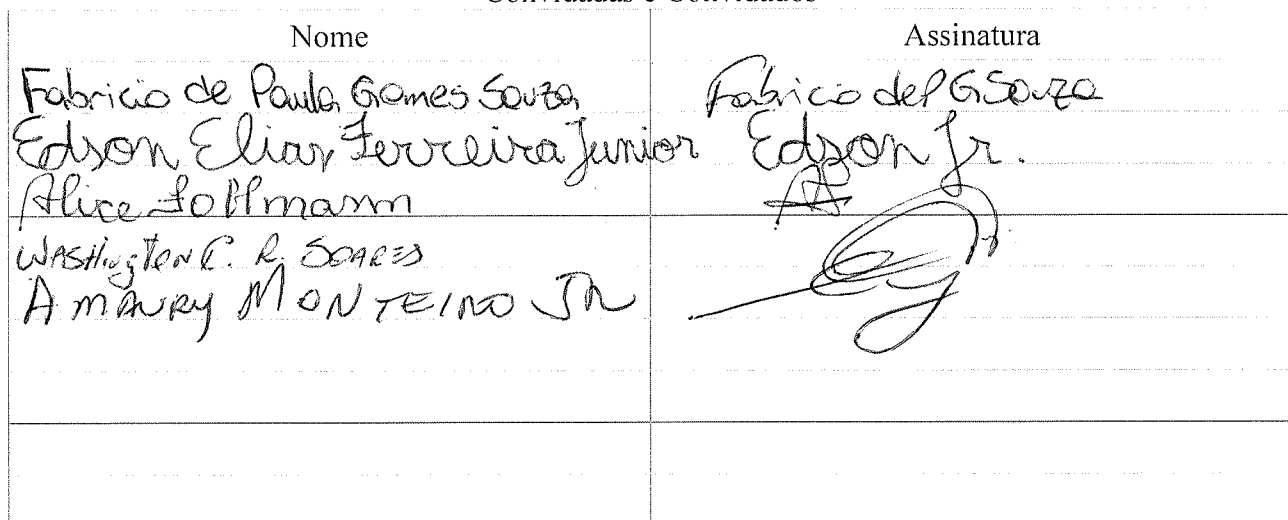 Convidadas e Convidados
Nome Assinatura
Fabricio de Paula Gomes Souza Fabricio de P G Souza
Edson Elias Ferreira Junior Edson Jr.
Alice
Washington C. R. SOARES
AMAURY MONTEIRO JR